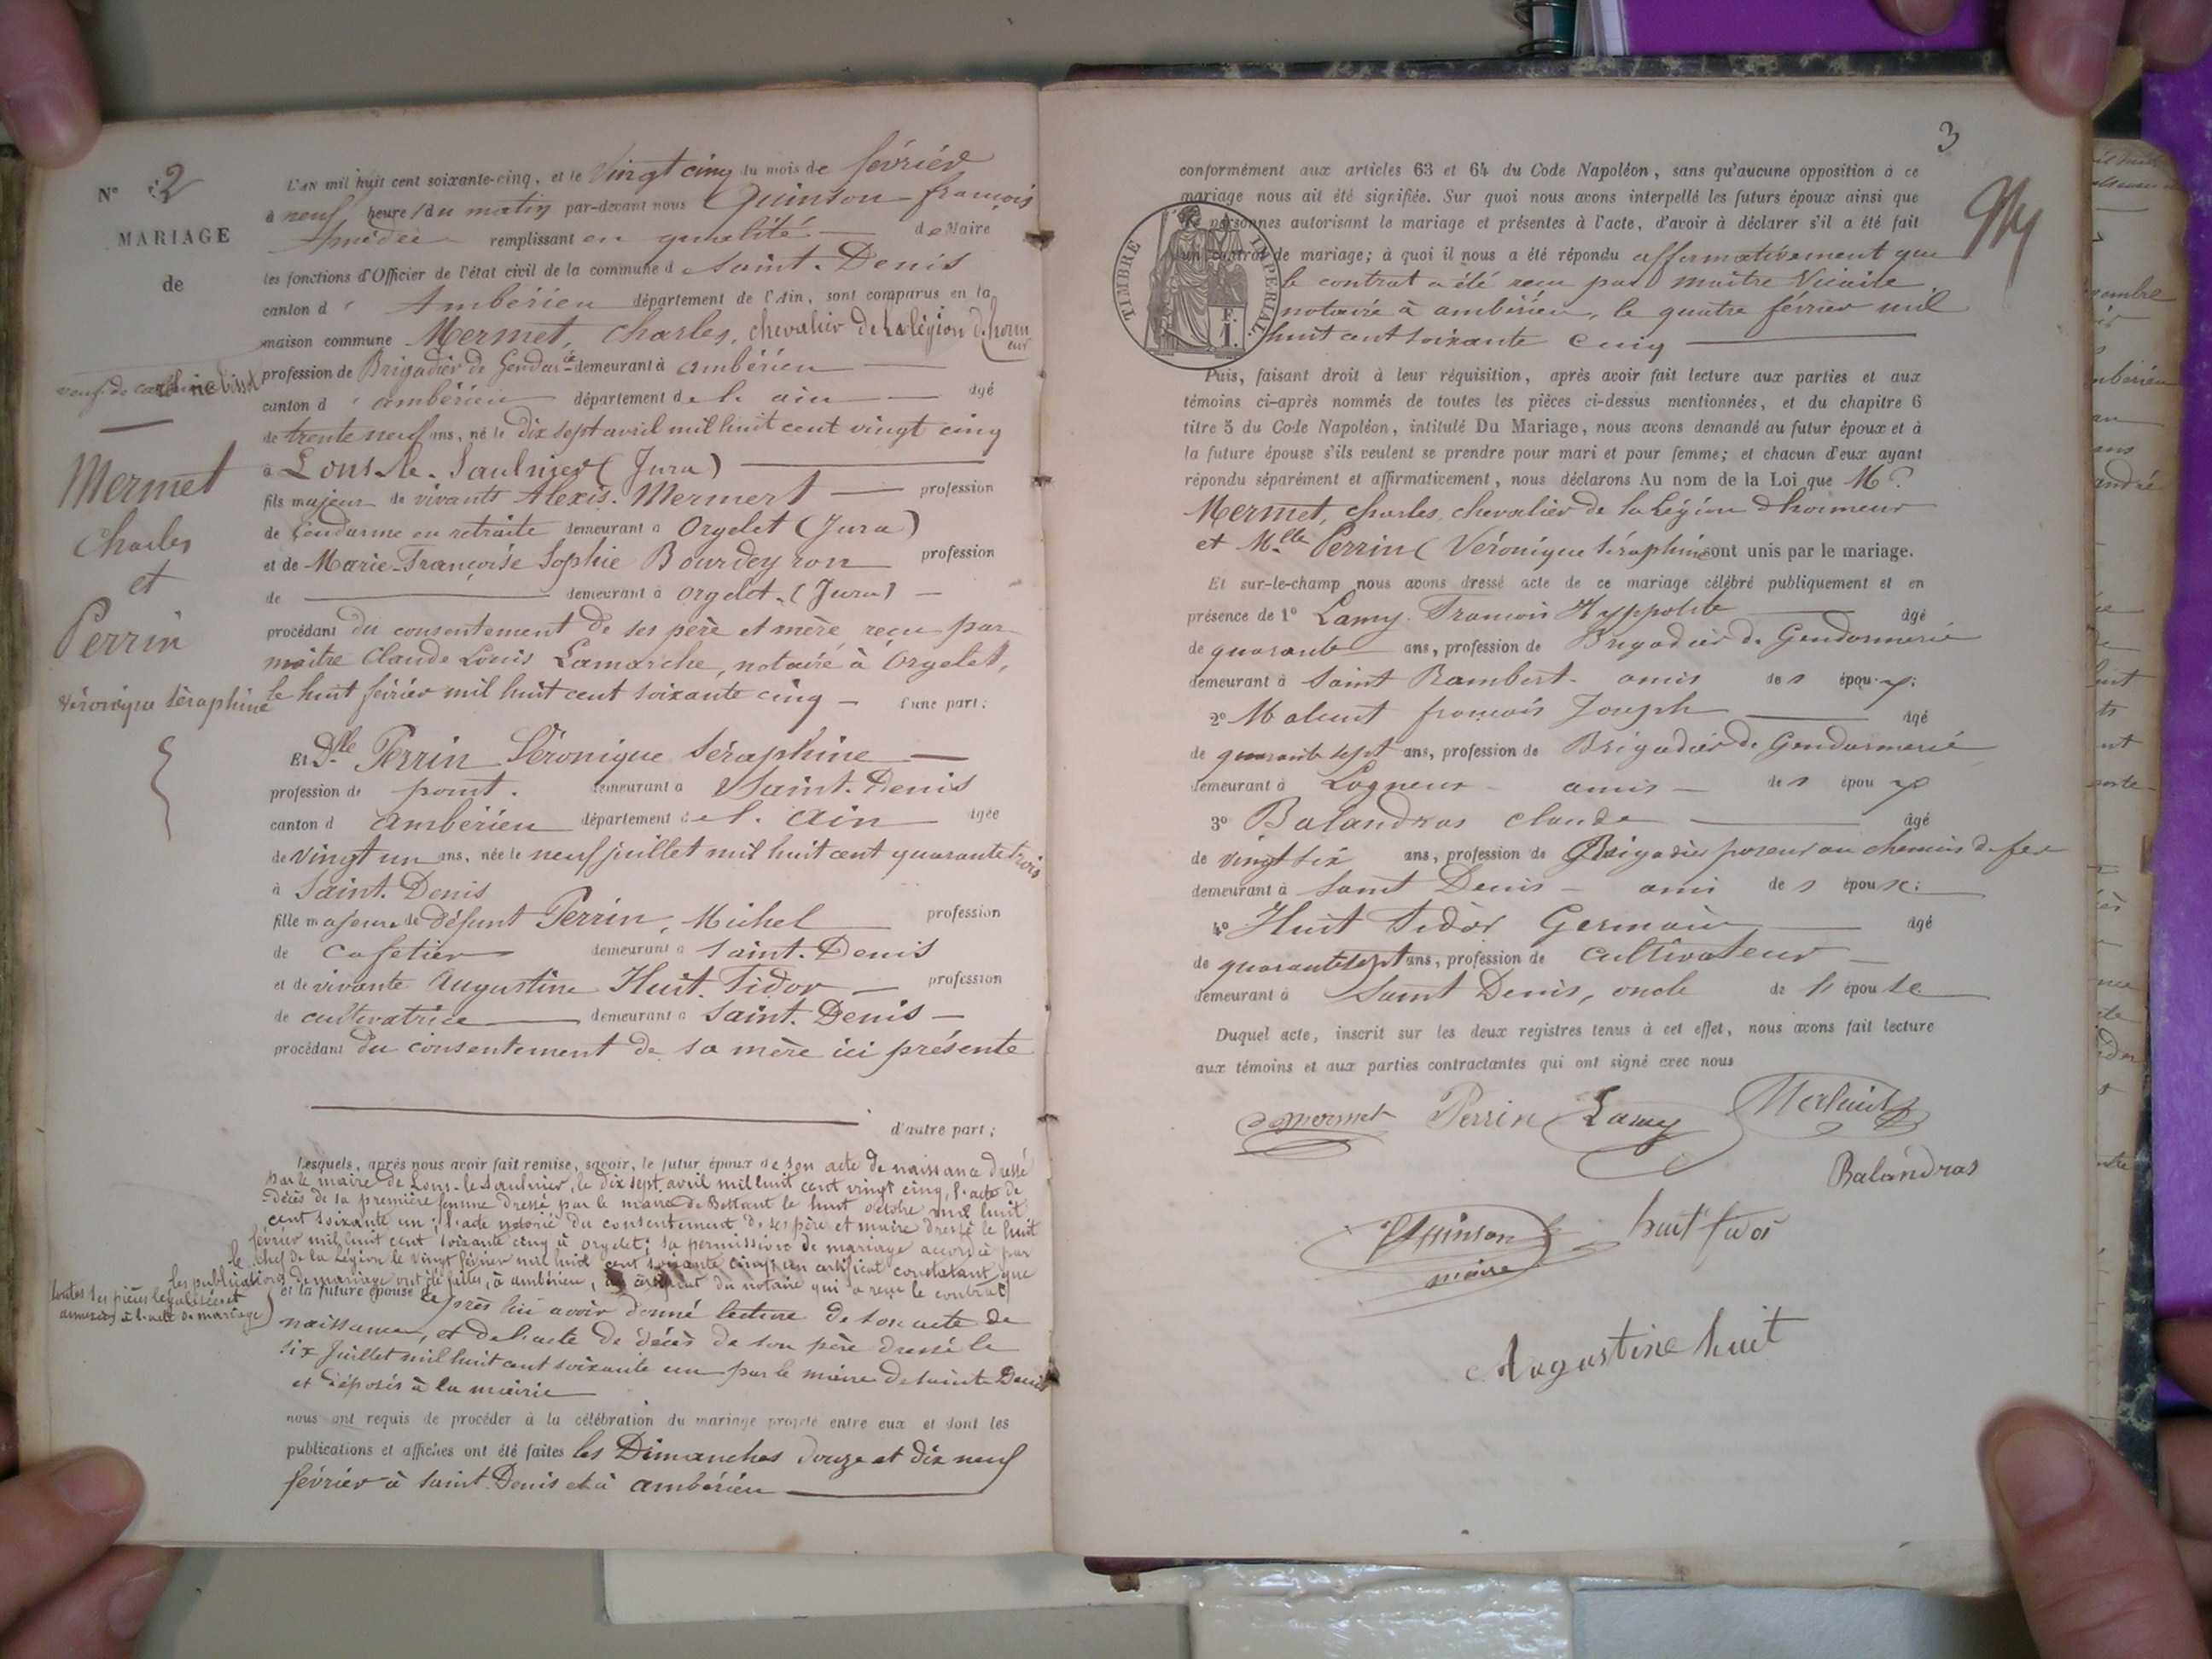 N° 2
MARIAGE
de
veuf de
Mermet
Charles
et
Perrin
Véronique Séraphine
L'AN mil huit cent soixante-cinq, et le Vingt cinq du mois de février
à neuf heures du matin par-devant nous Quinson françois
Amédée remplissant en qualité de Maire
les fonctions d'Officier de l'état civil de la commune d Saint. Denis
canton d' Ambérieu département de l'Ain, sont comparus en la
maison commune Mermet, Charles, chevalier de la légion d'honneur
profession de Brigadier de Gendarie demeurant à ambérieu
canton d' ambérieu département de l'ain âgé
de trente neuf ans, né le Dix sept avril mil huit cent vingt cinq
à Lons. le. Saulnier (Jura)
fils majeur de vivants Alexis. Mermert profession
de Gendarme en retraite demeurant à Orgelet (Jura)
et de Marie-Françoise Sophie Bourdeyron profession
de demeurant à Orgelet. (Jura)
procédant du consentement de ses père et mère reçu par
maître Claude Louis Lamarche, notaire à Orgelet,
le huit février mil huit cent soixante cinq d'une part;
Et Dlle Perrin Véronique Séraphine
profession de point. demeurant à Saint. Denis
canton d ambérieu département de l. ain âgée
de vingt un ans, née le neuf juillet mil huit cent quarante trois
à Saint. Denis
fille majeure de défunt Perrin, Michel profession
de cafetier demeurant à Saint. Denis
et de vivante Augustine Huit. Tidor profession
de cultivatrice demeurant à Saint. Denis
procédant du consentement de sa mère ici présente
d'autre part;
Lesquels, après nous avoir fait remise, savoir, le futur époux de son acte de naissance dressé
par le maire de Lons-le-Saulnier, le dix sept avril mil huit cent vingt cinq, l'acte de
décès de sa première femme dressé par le maire de Bettant le huit octobre mil huit
cent soixante un; l'acte notorié du consentement de ses père et maire dressé le huit
février mil huit cent soixante cinq à orgelet; sa permission de mariage accordée par
le chef de la Légion le vingt février mil huit cent soixante cinq; un certificat constatant que
les publications de mariage ont été faites, à ambérieu, du notaire qui a reçu le contrat
toutes ses pièces légalisées et
annexées à l'acte de mariage
et la future épouse après lui avoir donné lecture de son acte de
naissance, et de l'acte de décès de son père dressé le
six Juillet mil huit cent soixante un par le maire de saint Denis
et déposés à la mairie
nous ont requis de procéder à la célébration du mariage projeté entre eux et dont les
publications et affiches ont été faites les Dimanches douze et dix neuf
février à Saint Denis et à ambérieu
3
conformément aux articles 63 et 64 du Code Napoléon, sans qu'aucune opposition à ce
mariage nous ait été signifiée. Sur quoi nous avons interpellé les futurs époux ainsi que
personnes autorisant le mariage et présentes à l'acte, d'avoir à déclarer s'il a été fait
un contrat de mariage; à quoi il nous a été répondu affirmativement que
le contrat a été reçu par maître Vicaire
notaire à ambérieu, le quatre février mil
huit cent soixante cinq
TIMBRE IMPERIAL.
F.
1.
Puis, faisant droit à leur réquisition, après avoir fait lecture aux parties et aux
témoins ci-après nommés de toutes les pièces ci-dessus mentionnées, et du chapitre 6
titre 5 du Code Napoléon, intitulé Du Mariage, nous avons demandé au futur époux et à
la future épouse s'ils veulent se prendre pour mari et pour femme; et chacun d'eux ayant
répondu séparément et affirmativement, nous déclarons Au nom de la Loi que Mr.
Mermet, Charles chevalier de la Légion d'honneur
et Mlle Perrin (Véronique Séraphine sont unis par le mariage.
Et sur-le-champ nous avons dressé acte de ce mariage célébré publiquement et en
présence de 1° Lamy François Hyppolite âgé
de quarante ans, profession de Brigadier de Gendarmerie
demeurant à Saint Rambert. amis des époux;
2° Maluit françois Joseph âgé
de quarante sept ans, profession de Brigadier de Gendarmerie
demeurant à Lagneux amis des époux
3° Balandras claude âgé
de vingt six ans, profession de Brigadier poseur au chemin de fer
demeurant à Saint Denis ami des époux;
4° Huit Tidor Germain âgé
de quarante sept ans, profession de cultivateur
demeurant à Saint Denis, oncle de l'épouse
Duquel acte, inscrit sur les deux registres tenus à cet effet, nous avons fait lecture
aux témoins et aux parties contractantes qui ont signé avec nous
Mermet Perrin Lamy
Balandras
Quinson
maire
huit
Augustine huit